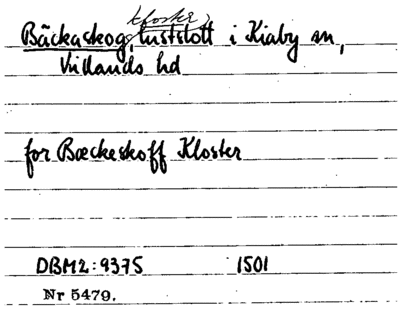 kloster
Bäckaskog, lustslott i Kiaby sn,
Villands hd
for Bæckeskoff Kloster
DBM2:9375 1501
Nr 5479.